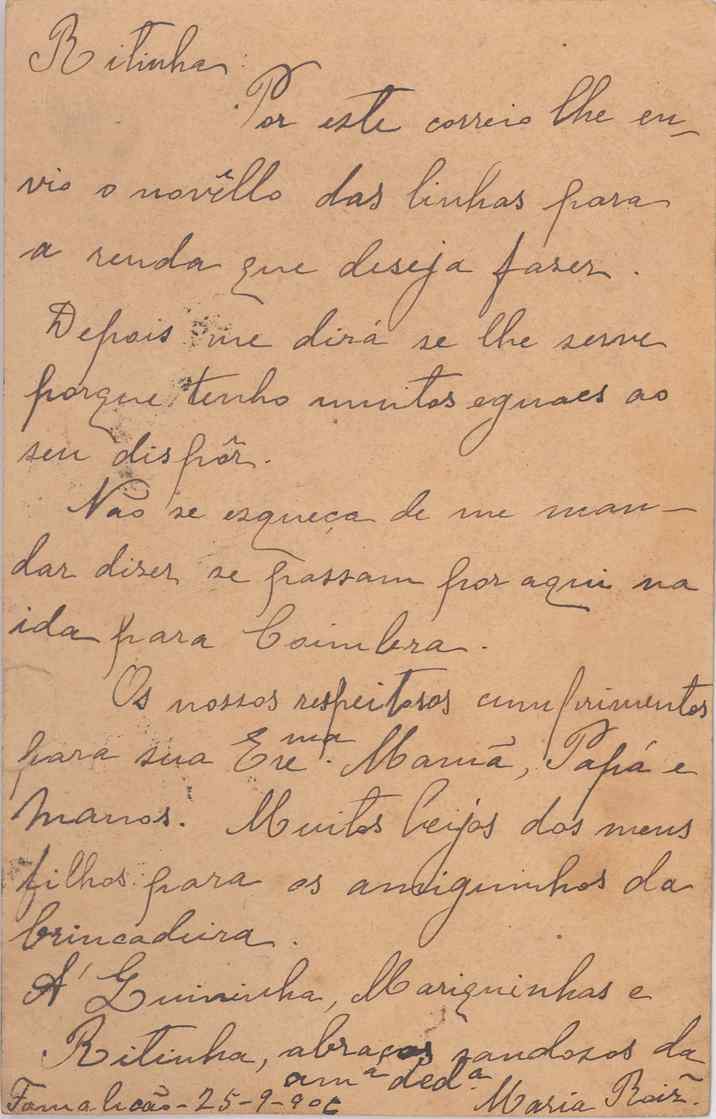 Ritinha:
Por este correio lhe en-
vio o novêllo das linhas para
a renda que deseja fazer.
Depois me dirá se lhe serve
porque tenho muitos eguaes ao
seu dispôr.
Não se esqueça de me man-
dar dizer se passam por aqui na
ida para Coimbra.
Os nossos respeitosos cumprimentos
para sua Exe.ma Mamã, Papá e
manos. Muitos beijos dos meus
filhos para os amiguinhos da
brincadeira.
A' Zuininha, Mariquinhas e
Ritinha, abraços saudosos da
am.ª ded.ª
Famalicão - 25-9-90 Maria